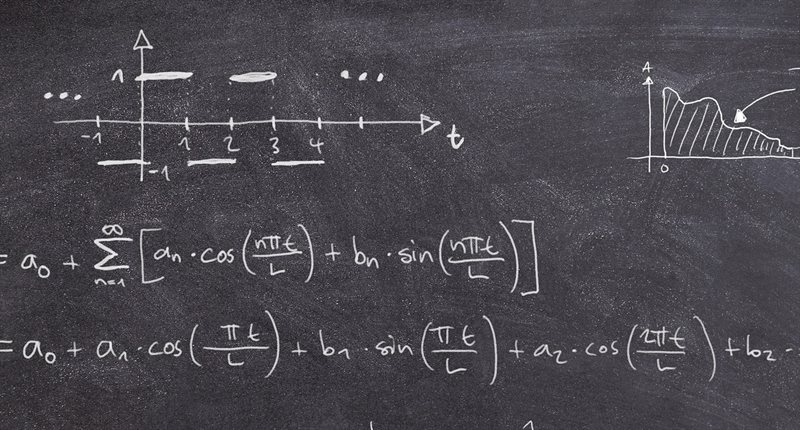 1
... ...
-1 1 2 3 4 t
-1
A
0
= a₀ + ∑ₙ₌₁^∞ [aₙ · cos(nπt/L) + bₙ · sin(nπt/L)]
= a₀ + a₁ · cos(πt/L) + b₁ · sin(πt/L) + a₂ · cos(2πt/L) + b₂ ·